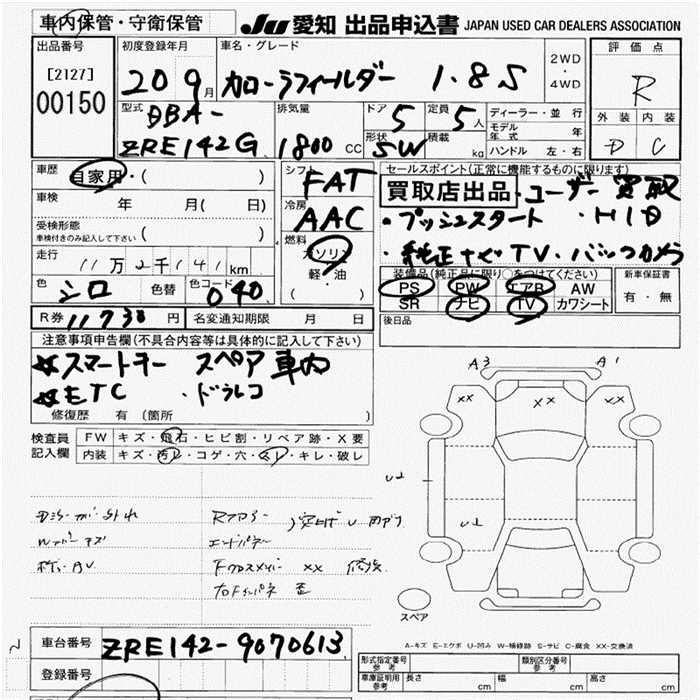 車内保管・守衛保管
JU 愛知 出品申込書 JAPAN USED CAR DEALERS ASSOCIATION
出品番号
[2127]
00150
初度登録年月
20 9月
車名・グレード
カローラフィールダー 1.8S
2WD
・
4WD
評価点
R
外装 内装
D C
型式
DBA-
ZRE142G
排気量
1800 CC
ドア 5
定員 5人
形状 SW
積載 kg
ディーラー・並行
モデル年式 年
ハンドル 左・右
車歴
自家用・( )
車検 年 月( 日)
受検形態
車検付きのみ記入して下さい ( )
走行 11万2千141km
色 シロ 色替 色コード 040
R券 11730 円 名変通知期限 月 日
シフト
FAT
冷房
AAC
燃料
ガソリン
軽・油
( )
セールスポイント(正常に機能するものに限ります)
買取店出品・ユーザー買取
・プッシュスタート ・HID
・純正ナビTV・バックカメラ
装備品(純正品に限り○をつけてください)
PS PW エアB AW
SR ナビ TV カワシート
新車保証書
有・無
後日品
注意事項申告欄(不具合内容等は具体的に記入して下さい)
★スマートキー スペア車内
★ETC ・ドラレコ
修復歴 有 (箇所 )
検査員
記入欄
FW キズ・飛石・ヒビ割・リペア跡・X要
内装 キズ・汚レ・コゲ・穴・スレ・キレ・破レ
Rフロアー
エンドパネル
Fクロスメンバー XX 修復
A3 A1
XX XX XX
スペア
A-キズ E-エクボ U-凹み W-補修跡 S-サビ C-腐食 XX-交換済
車台番号 ZRE142-9070613
登録番号
型式指定番号
参考
類別区分番号
参考
車庫証明用
参考
長さ cm 幅 cm 高さ cm